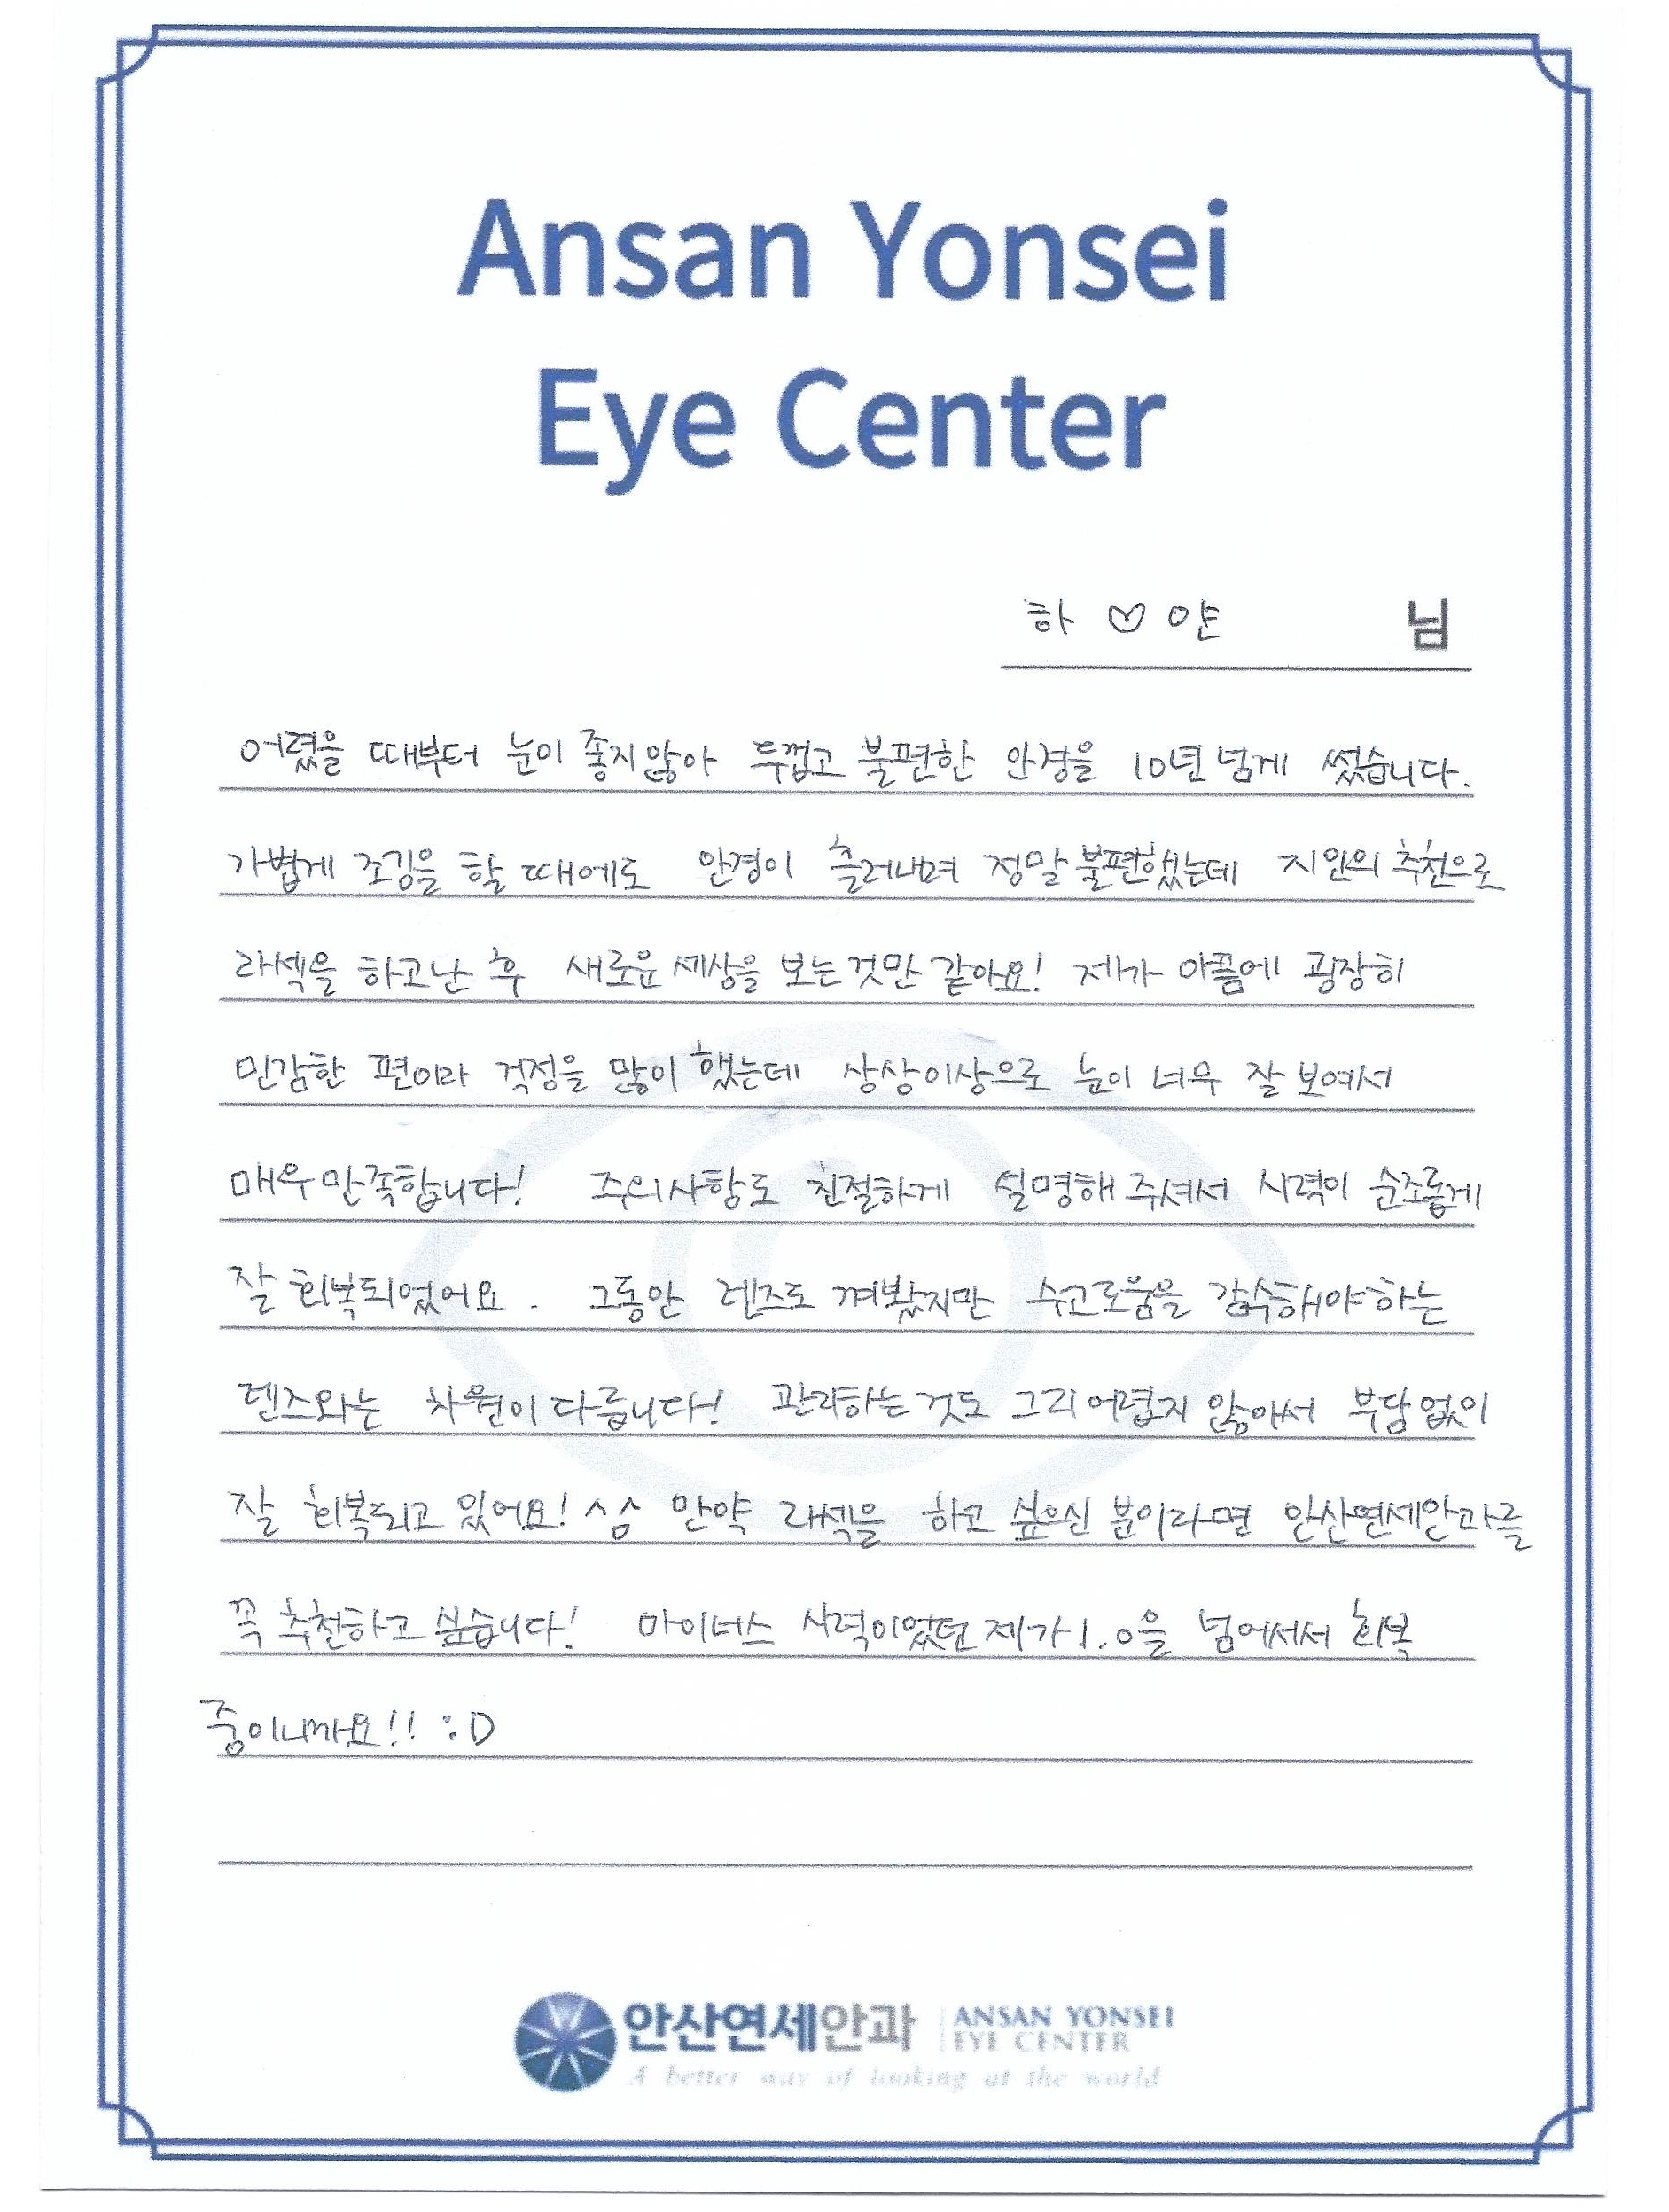 Ansan Yonsei
Eye Center
하 ♡ 얀 님
어렸을 때부터 눈이 좋지않아 두껍고 불편한 안경을 10년 넘게 썼습니다.
가볍게 조깅을 할 때에도 안경이 흘러내려 정말 불편했는데 지인의 추천으로
라섹을 하고난 후 새로운 세상을 보는 것만 같아요! 제가 아픔에 굉장히
민감한 편이라 걱정을 많이 했는데 상상이상으로 눈이 너무 잘 보여서
매우 만족합니다! 주의사항도 친절하게 설명해 주셔서 시력이 순조롭게
잘 회복되었어요. 그동안 렌즈도 껴봤지만 수고로움을 감수해야하는
렌즈와는 차원이 다릅니다! 관리하는 것도 그리 어렵지 않아서 부담 없이
잘 회복되고 있어요! ^^ 만약 라섹을 하고 싶으신 분이라면 안산연세안과를
꼭 추천하고 싶습니다! 마이너스 시력이었던 제가 1.0을 넘어서서 회복
중이니까요!! :D
안산연세안과 ANSAN YONSEI
EYE CENTER
A better way of looking at the world